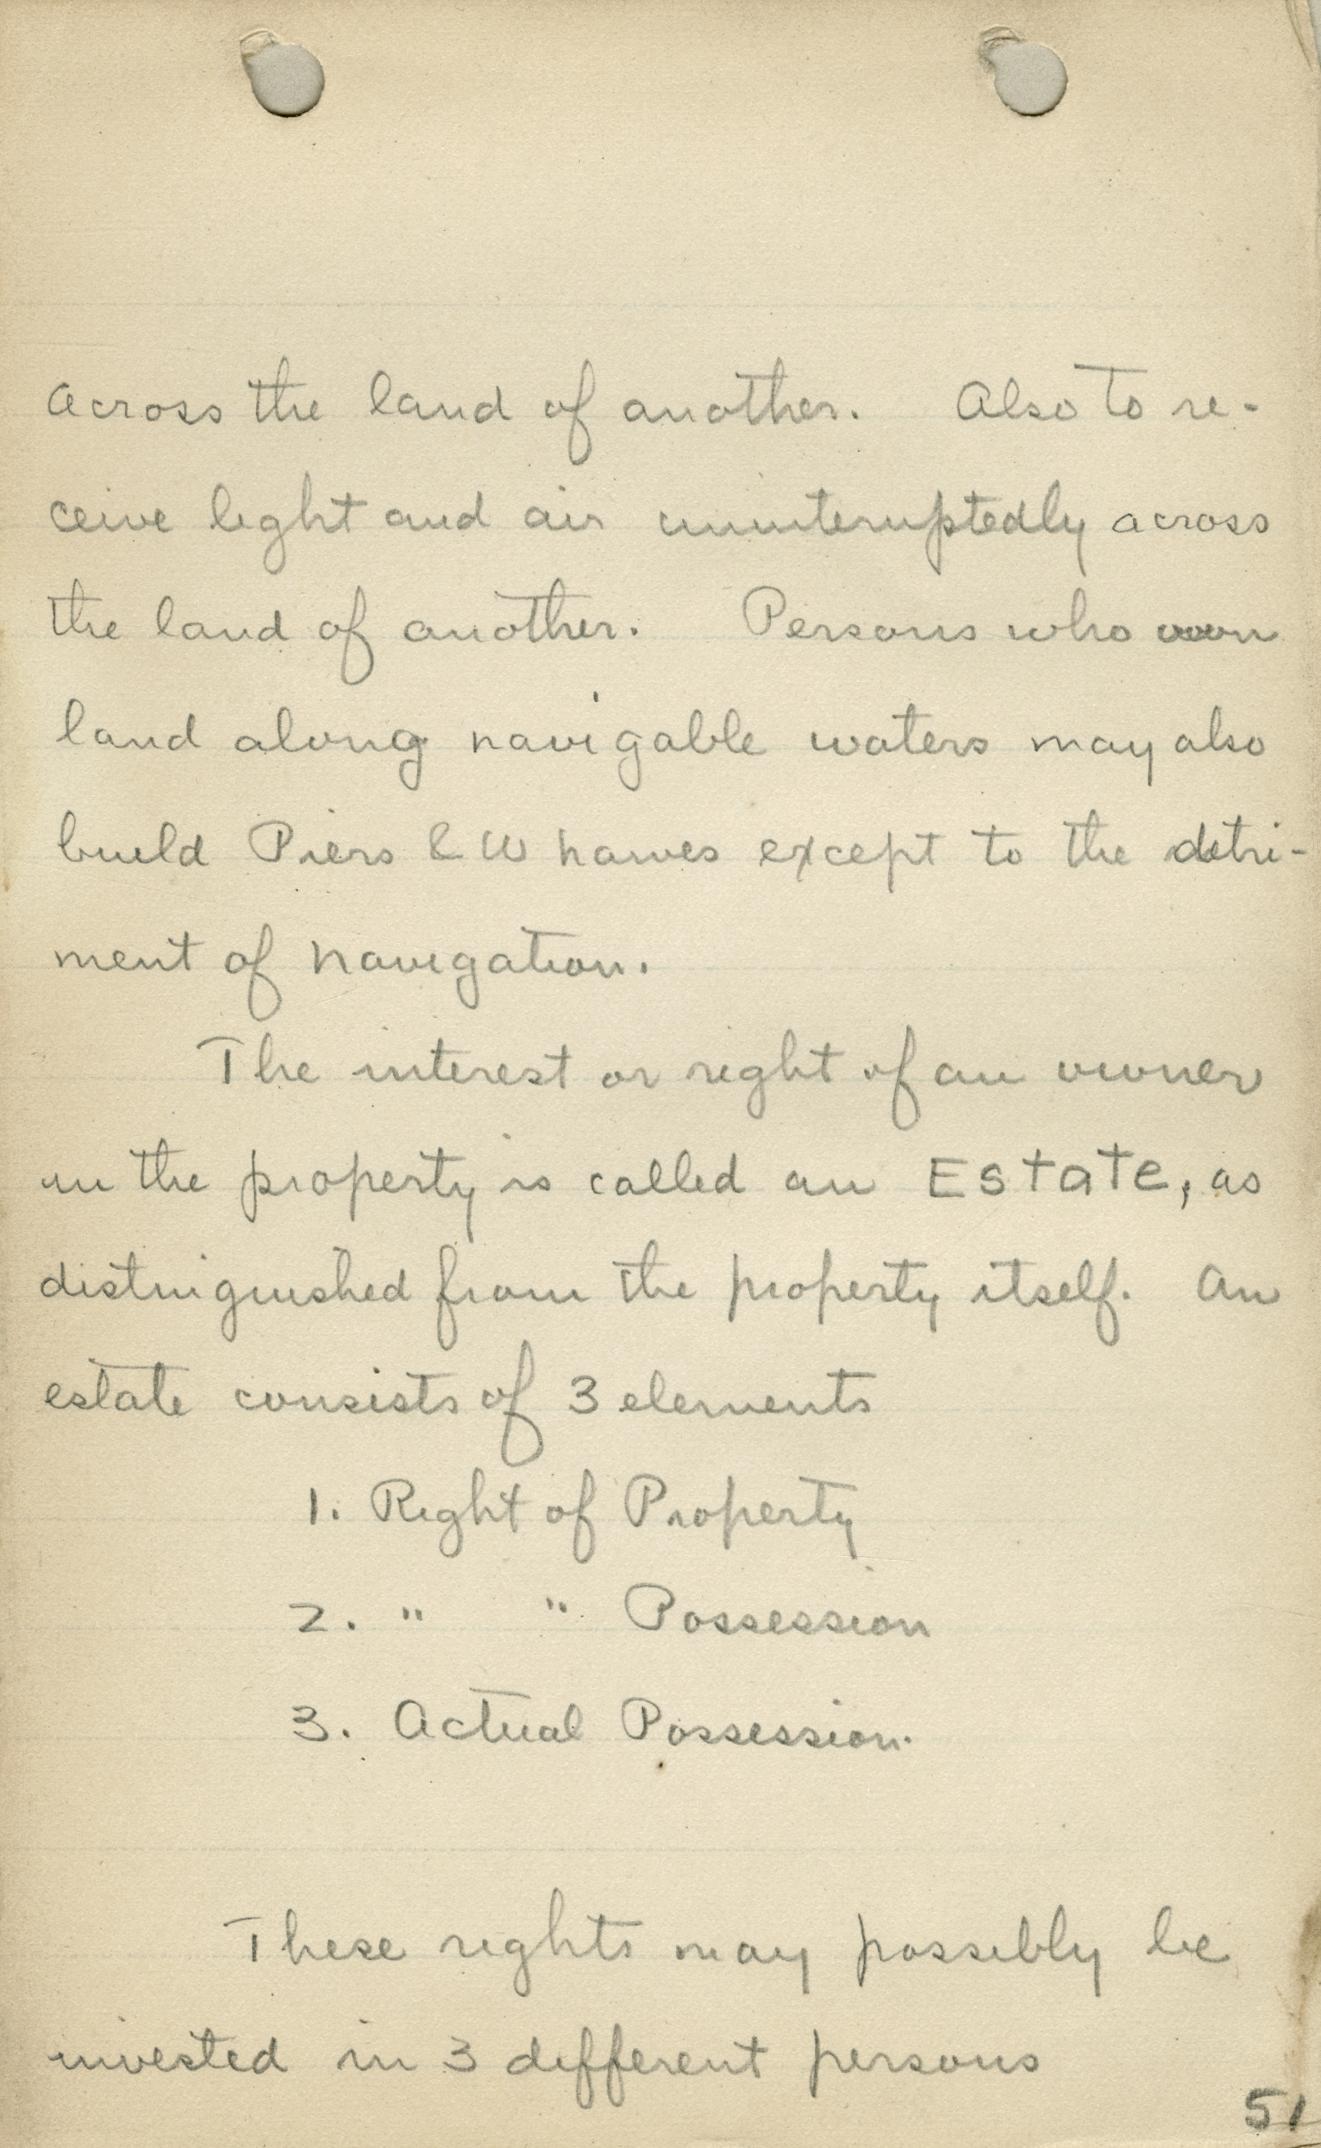 across the land of another. Also to re-
ceive light and air uninteruptedly across
the land of another. Persons who own
land along navigable waters may also
build Piers & Wharves except to the detri-
ment of navigation.
The interest or right of an owner
in the property is called an Estate, as
distinguished from the property itself. An
estate consists of 3 elements
1. Right of Property
2. " " Possession
3. Actual Possession.
These rights may possibly be
invested in 3 different persons
51